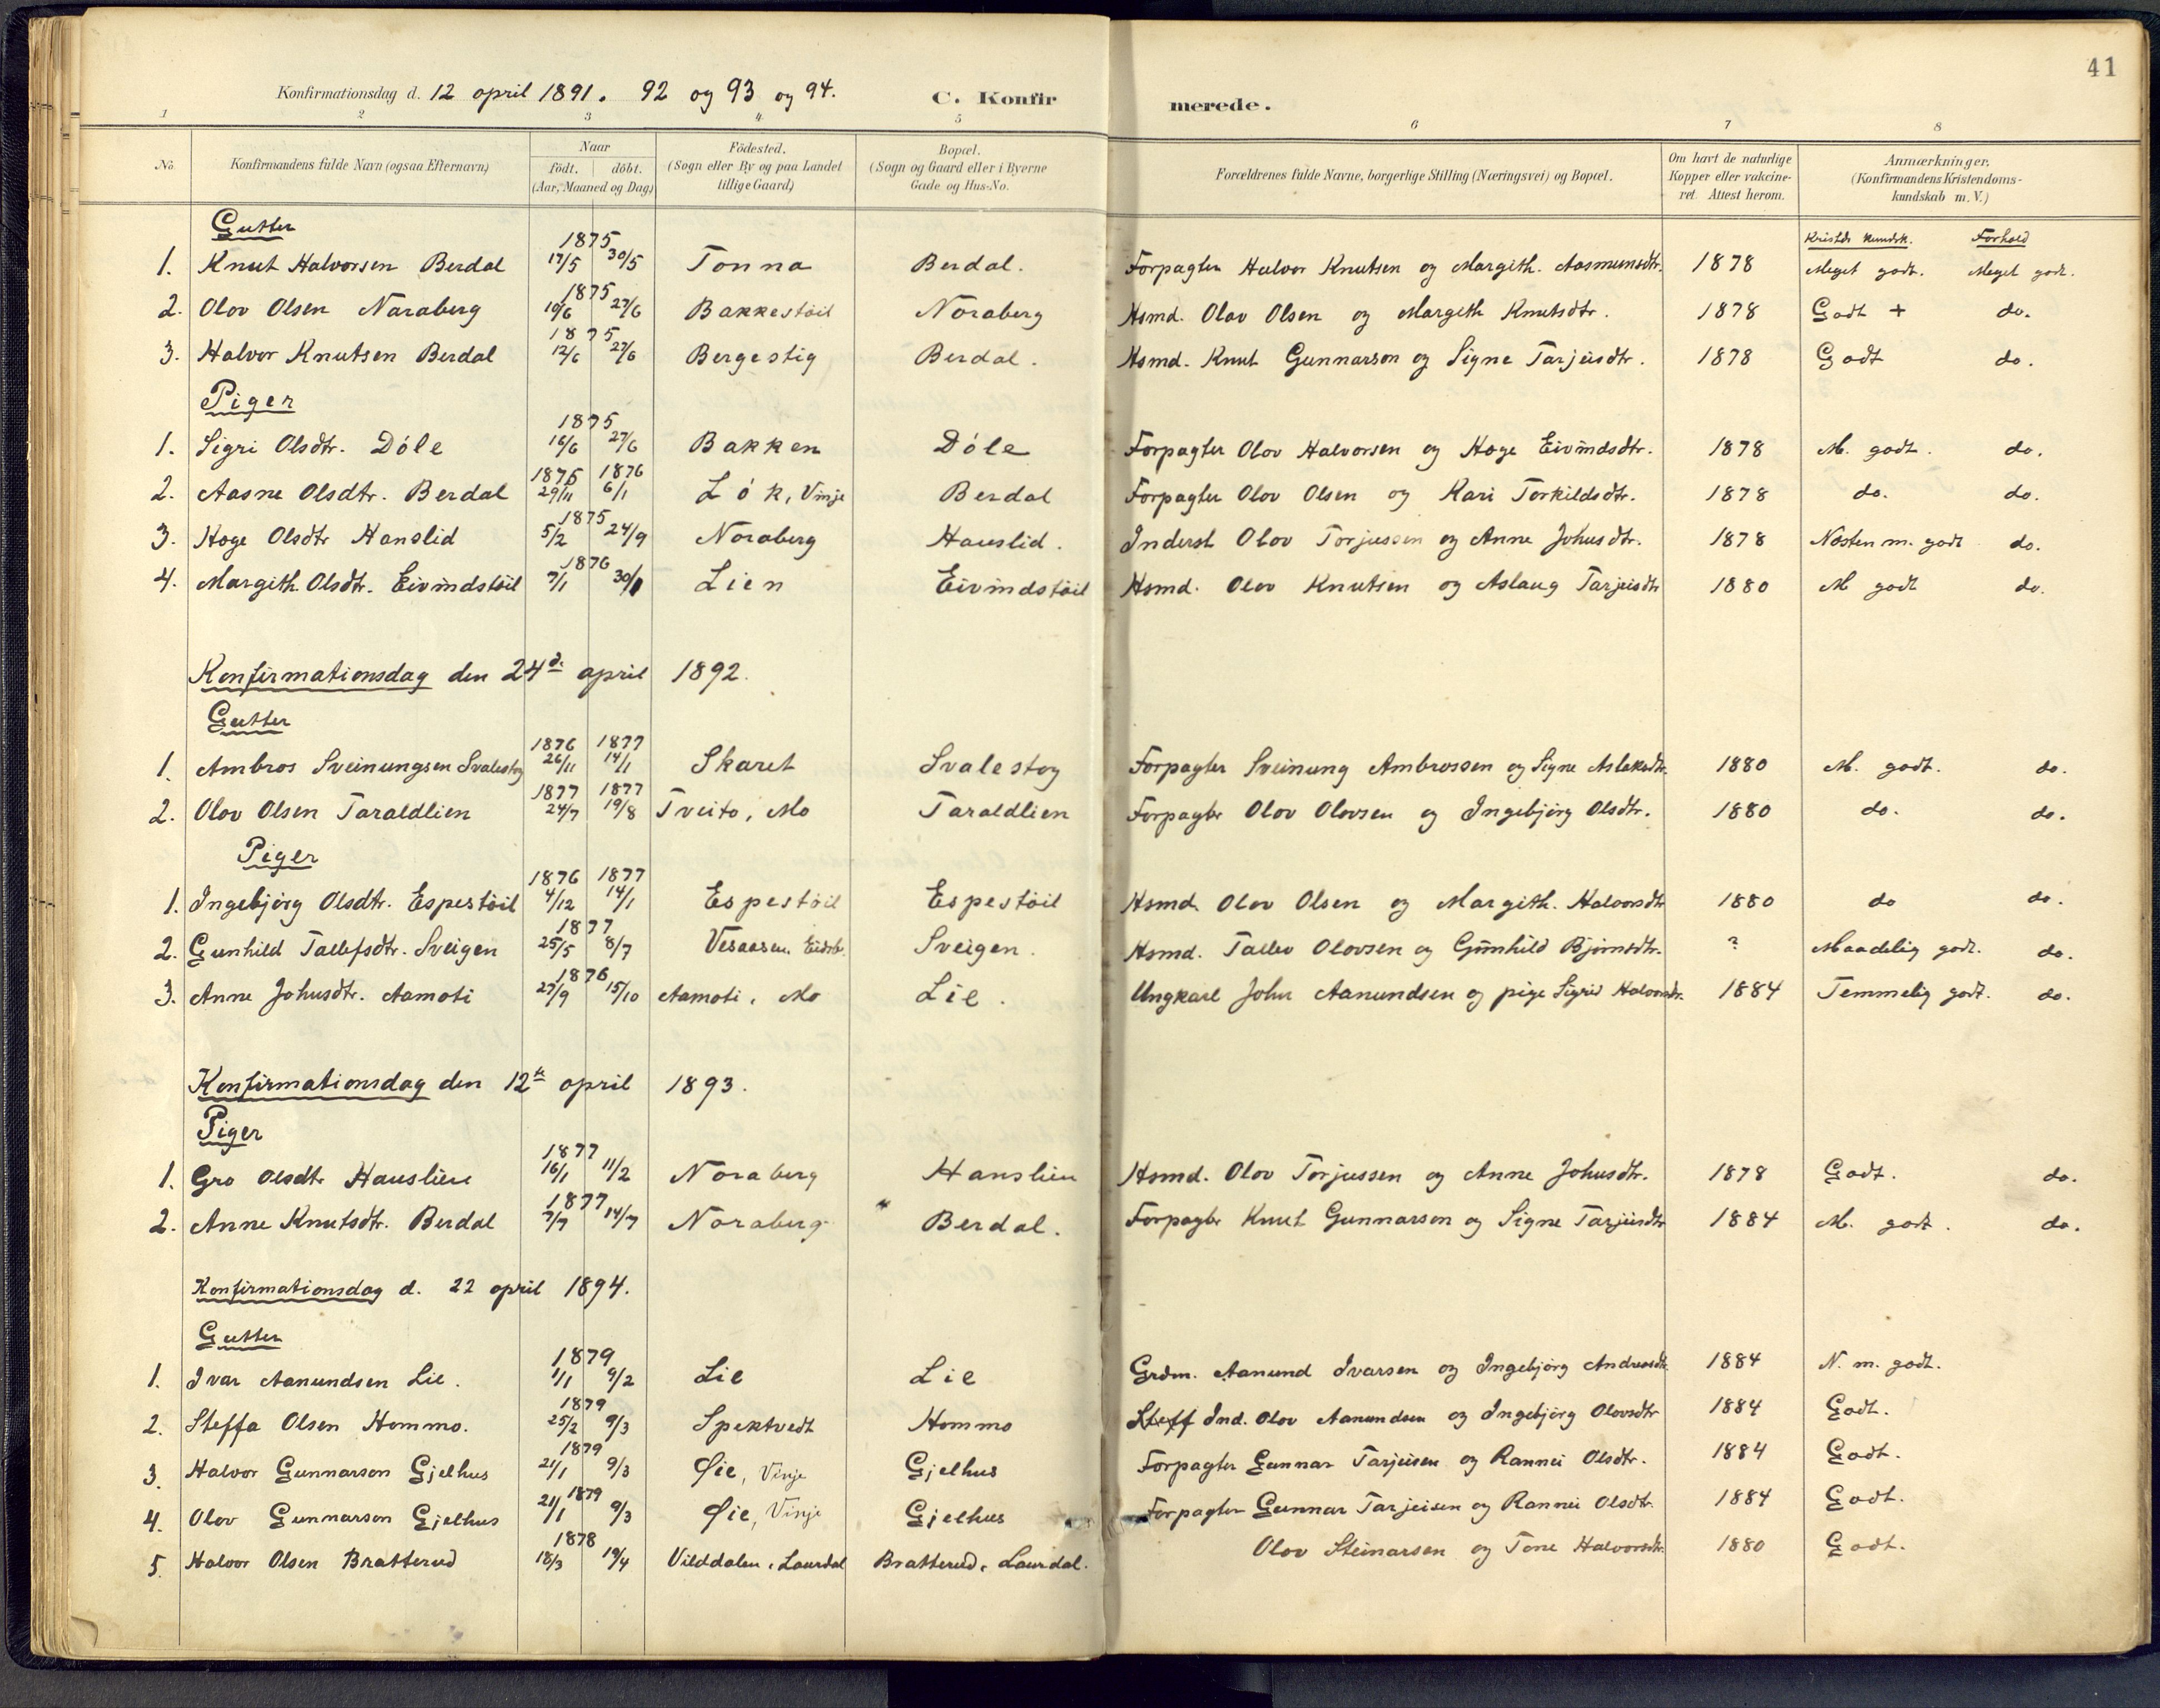 41
Konfirmationsdag d. 12 april 1891. 92 og 93 og 94. C. Konfirmerede.
1 2 3 4 5 6 7 8
No. Konfirmandens fulde Navn (ogsaa Efternavn) Naar født. døbt. (Aar, Maaned og Dag) Födested. (Sogn eller By og paa Landet tillige Gaard) Bopæl. (Sogn og Gaard eller i Byerne Gade og Hus-No. Forældrenes fulde Navne, borgerlige Stilling (Næringsvei) og Bopæl. Om havt de naturlige Kopper eller vakcineret. Attest herom. Anmærkninger. (Konfirmandens Kristendomskundskab m. V.)
Gutter Kristds kundsk. Forhold
1. Knut Halvorsen Berdal 1875 17/5 30/5 Tonna Berdal. Forpagter Halvor Knutsen og Margith. Aasmunsdtr. 1878 Meget godt. Meget godt.
2. Olov Olsen Noraberg 1875 19/6 27/6 Bakkestöil Noraberg Hsmd. Olav Olsen og Margith Knutsdtr. 1878 Godt + do.
3. Halvor Knutsen Berdal 1875 12/6 27/6 Bergestig Berdal. Hsmd. Knut Gunnarson og Signe Tarjeisdtr. 1878 Godt do.
Piger
1. Sigri Olsdtr. Döle 1875 16/6 27/6 Bakken Döle Forpagter Olov Halvorsen og Hoge Eivindsdtr. 1878 M. godt. do.
2. Aasne Olsdtr. Berdal 1875 29/11 1876 6/1 Lök, Vinje Berdal Forpagter Olov Olsen og Kari Torkildsdtr. 1878 do. do.
3. Hoge Olsdtr Hanslid 1875 5/2 24/9 Noraberg Hauslid. Inderst Olov Torjussen og Anne Johusdtr. 1878 Nesten m. godt do.
4. Margith. Olsdtr. Eivindstöil 1876 7/1 30/1 Lien Eivindstöil Hsmd. Olov Knutsen og Aslaug Tarjeisdtr 1880 M godt do.
Konfirmationsdag den 24d. april 1892.
Gutter
1. Ambros Sveinungsen Svalestog 1876 26/11 1877 14/1 Skaret Svalestog Forpagter Sveinung Ambrossen og Signe Aslaksdtr. 1880 M. godt. do.
2. Olov Olsen Taraldlien 1877 24/7 1877 19/8 Tveito, Mo Taraldlien Forpagter Olov Olovsen og Ingebjörg Olsdtr. 1880 do. do.
Piger
1. Ingebjörg Olsdtr. Espestöil 1876 4/12 1877 14/1 Espestöil Espestöil Hsmd. Olov Olsen og Margith. Halvorsdtr 1880 do do.
2. Gunhild Tallefsdtr. Sveigen 1877 25/5 8/7 Vesaasen, Eidsb. Sveigen. Hsmd. Tallev Olovsen og Gunhild Bjørnsdtr. ? Maadelig godt. do.
3. Anne Johusdtr. Aamoti 1876 27/9 15/10 Aamoti, Mo Lie. Ungkarl John Aanundsen og pige Sigrid Halvorsdtr. 1884 Temmelig godt. do.
Konfirmationsdag den 12te april 1893.
Piger
1. Gro Olsdtr Hauslien 1877 16/1 11/2 Noraberg Hanslien Hsmd. Olov Torjussen og Anne Johusdtr. 1878 Godt. do.
2. Anne Knutsdtr. Berdal 1877 7/7 14/7 Noraberg Berdal. Forpagter Knut Gunnarson og Signe Tarjeisdtr 1884 M. godt. do.
Konfirmationsdag d. 22 april 1894.
Gutter
1. Ivar Aanundsen Lie. 1879 1/1 9/2 Lie Lie Grdm. Aanund Ivarsen og Ingebjörg Andreasdtr 1884 N. m. godt.
2. Steffa Olsen Hommo. 1879 25/2 9/3 Spektvedt Hommo Steff Ind. Olov Aanundsen og Ingebjörg Olovsdtr 1884 Godt.
3. Halvor Gunnarson Gjelhus 1879 21/1 9/3 Øie, Vinje Gjelhus Forpagter Gunnar Tarjeisen og Rannei Olsdtr. 1884 Godt.
4. Olov Gunnarson Gjelhus 1879 21/1 9/3 Øie, Vinje Gjelhus Forpagter Gunnar Tarjeisen og Rannei Olsdtr. 1884 Godt.
5. Halvor Olsen Bratterud 1878 18/3 19/4 Vilddalen, Laurdal Bratterud, Laurdal. Olov Steinarsen og Tone Halvorsdtr. 1880 Godt.